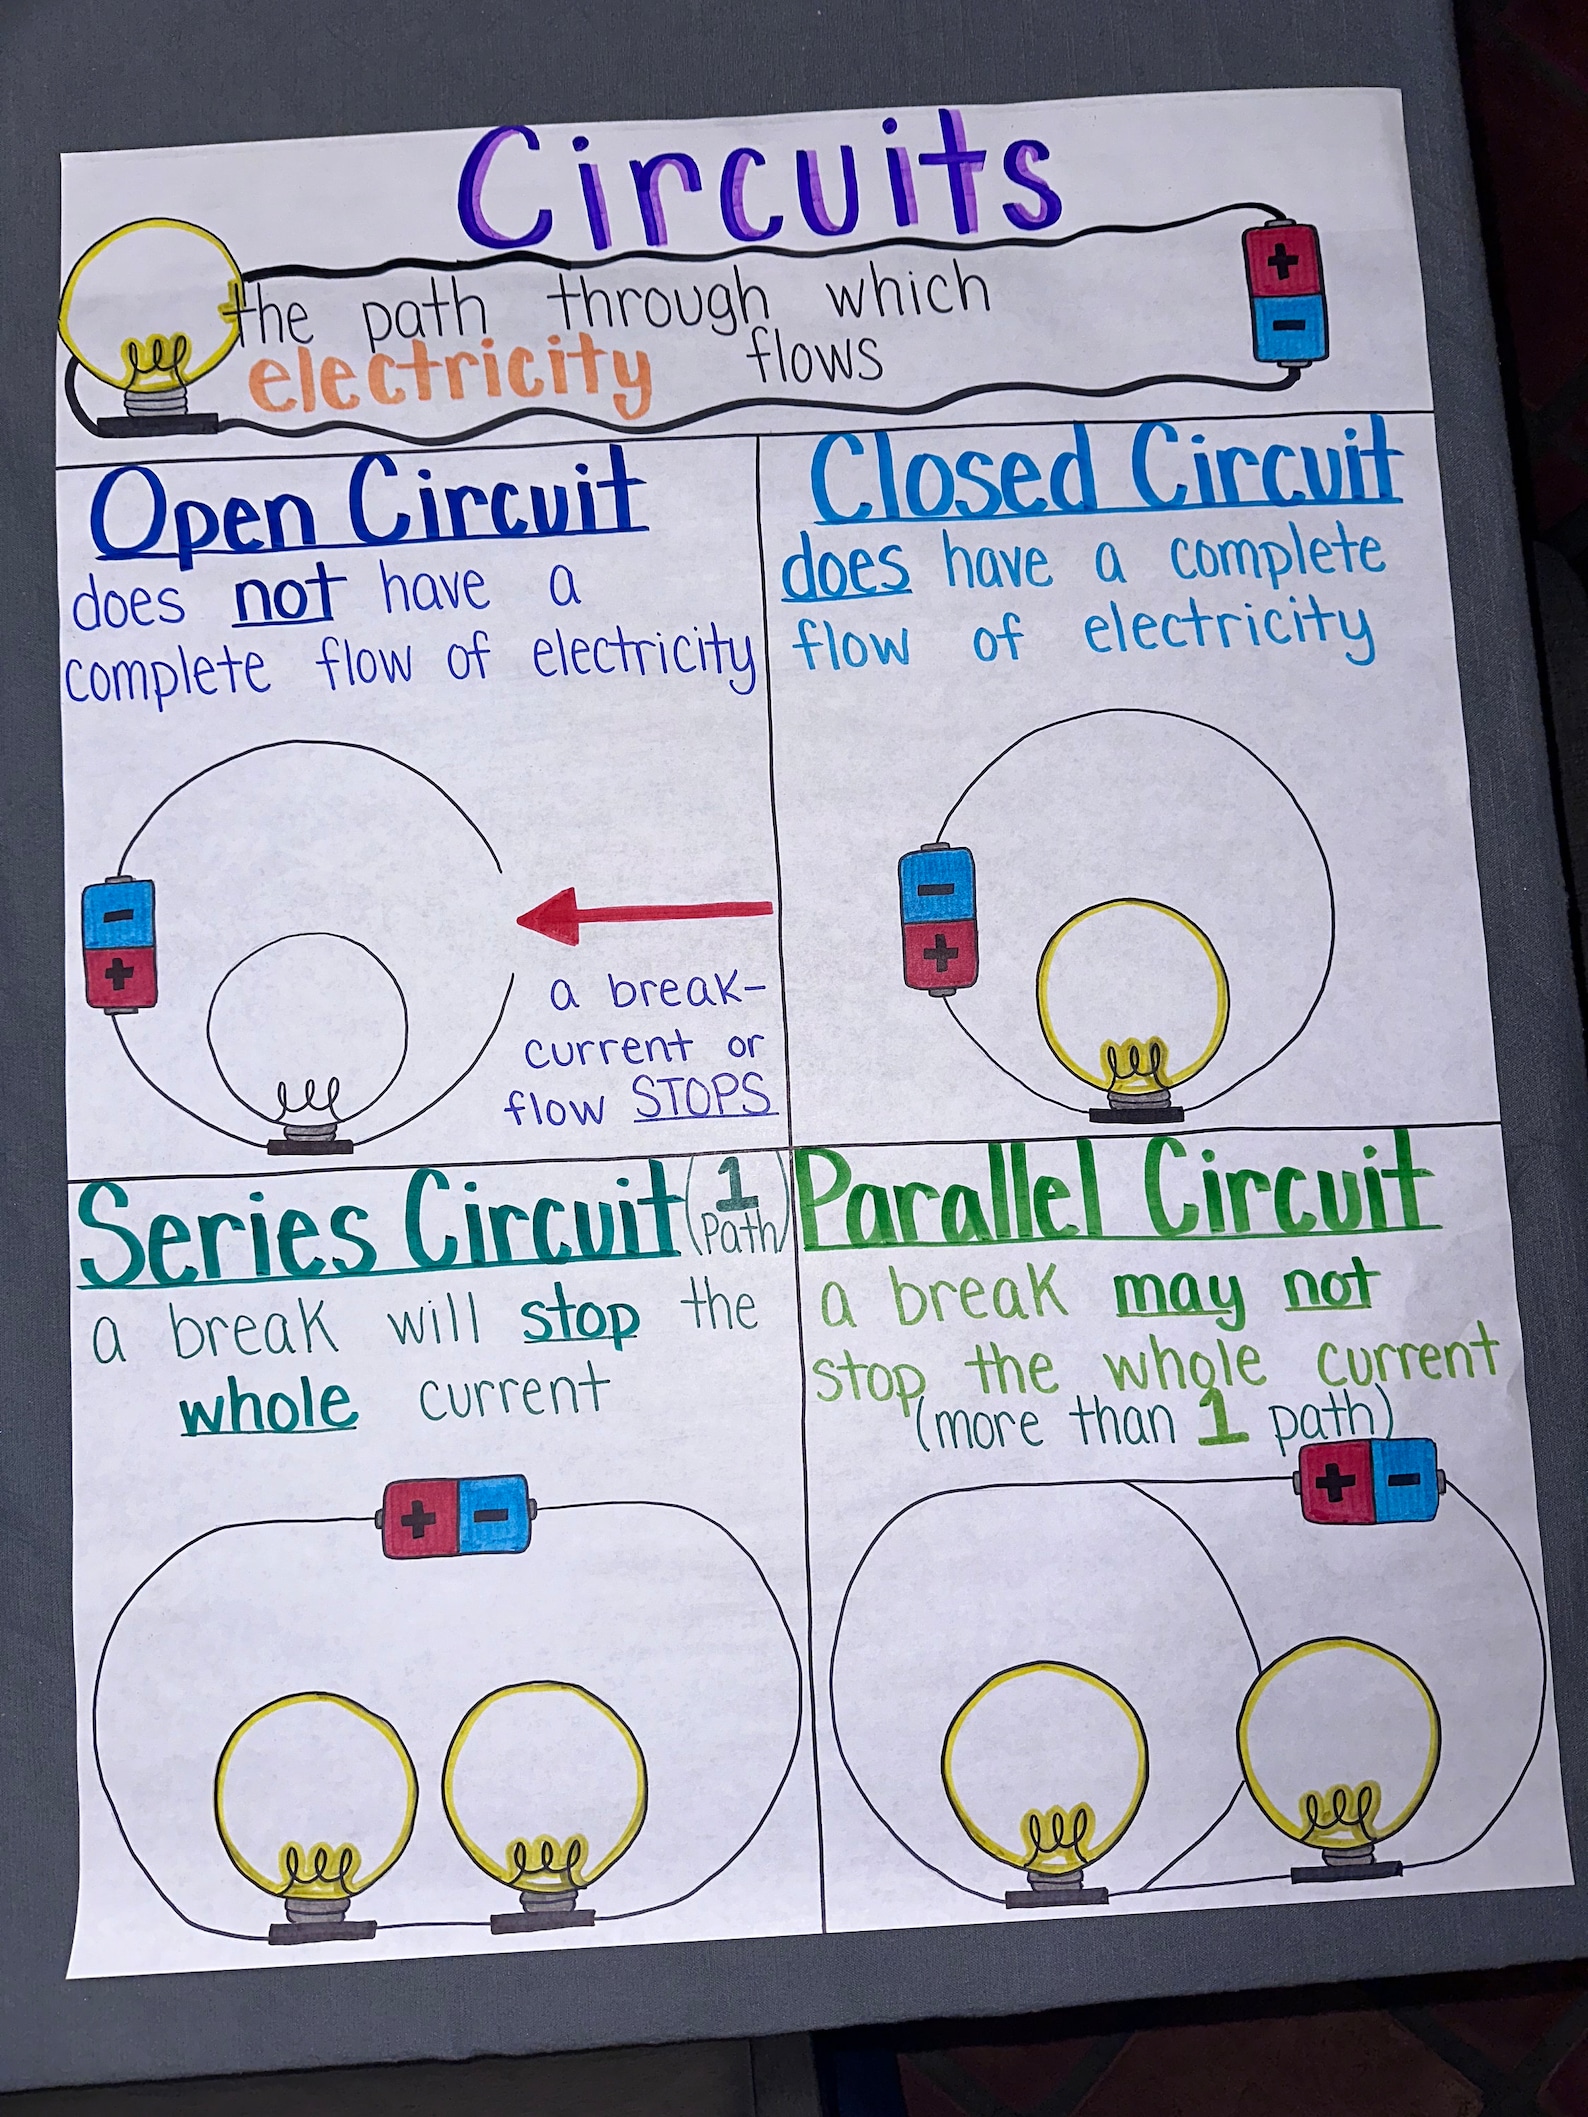 Circuits
the path through which
electricity flows
+
-
Open Circuit
does not have a
complete flow of electricity
-
+
a break-
current or
flow STOPS
Closed Circuit
does have a complete
flow of electricity
-
+
Series Circuit (1
Path)
a break will stop the
whole current
+ -
Parallel Circuit
a break may not
stop the whole current
(more than 1 path)
+ -